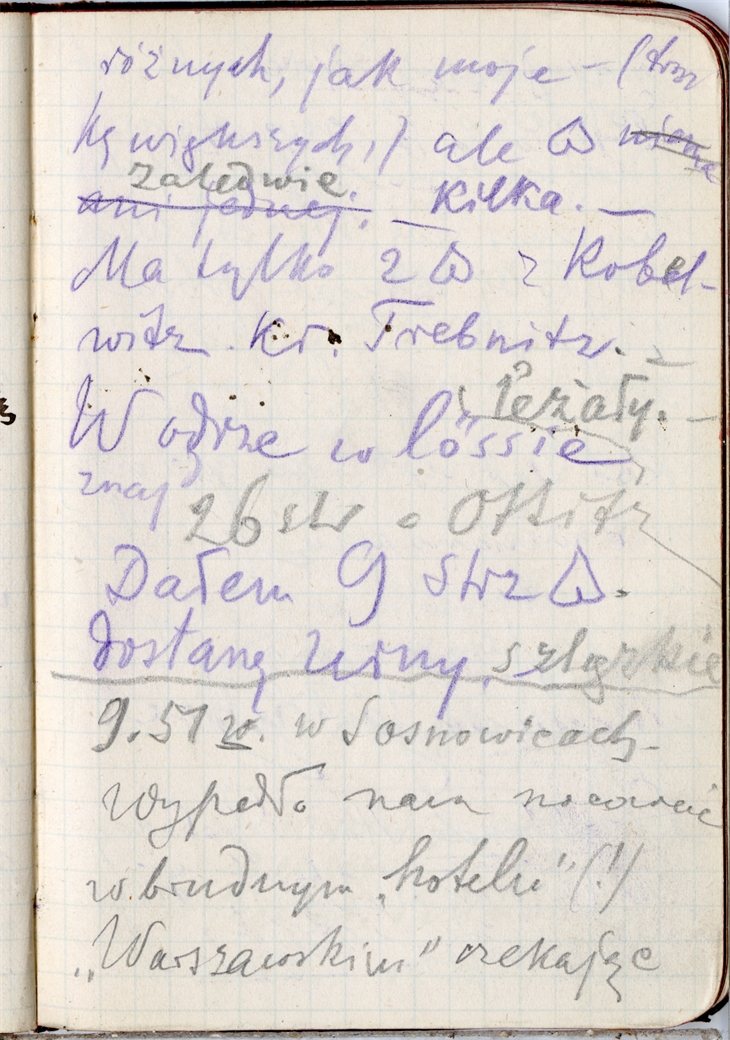 różnych, jak moje – (trzy
są większych!) ale
zaledwie
ani jednej. – kilka. –
Ma tylko 2 z Kobel-
witz Kr. Trebnitz. –
leżały. –
W odrze w lössie
znaj
26 str Ottitz
Dałem 9 strz
dostanę zimy szląskie
9. 51 w. w Sosnowicach
wypadło nam nocować
w brudnym „hotelu" (!)
„Warszawskim" czekając